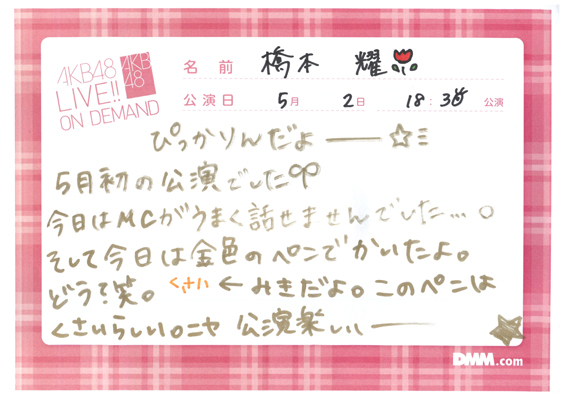 AKB48
LIVE!!
ON DEMAND
AKB
48
名前 橋本 耀
公演日 5月 2日 18:30 公演
ぴっかりんだよー
5月初の公演でした
今日はMCがうまく話せませんでした…。
そして今日は金色のペンでかいたよ。
どう?笑。 くさい ← みきだよ。このペンは
くさいらしい。ニヤ 公演楽しいー
DMM.com